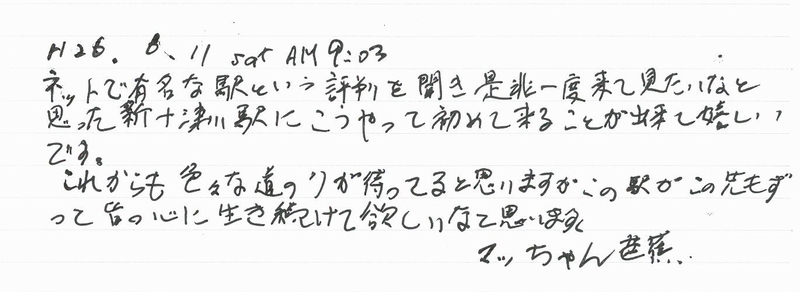 H26. 6. 11 sat AM 9:03
ネットで有名な駅という評判を聞き是非一度来て見たいなと
思った新十津川駅にこうやって初めて来ることが出来て嬉しい
です。
これからも色々な道のりが待ってると思いますがこの駅がこの先もず
って皆の心に生き続けて欲しいなて思います。
マッちゃん芭蕉..